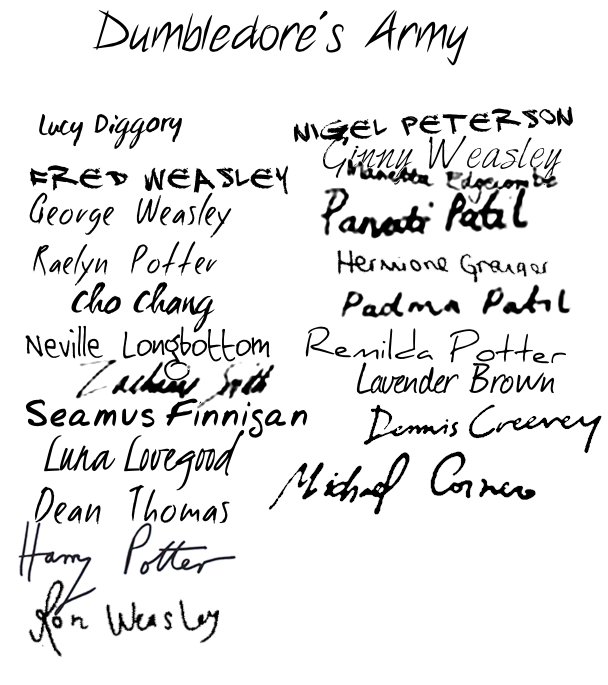 Dumbledore's Army
Lucy Diggory
FRED WEASLEY
George Weasley
Raelyn Potter
Cho Chang
Neville Longbottom
Zacharias Smith
Seamus Finnigan
Luna Lovegood
Dean Thomas
Harry Potter
Ron Weasley
NIGEL PETERSON
Ginny Weasley
Marietta Edgecombe
Parvati Patil
Hermione Granger
Padma Patil
Remilda Potter
Lavender Brown
Dennis Creevey
Michael Corner